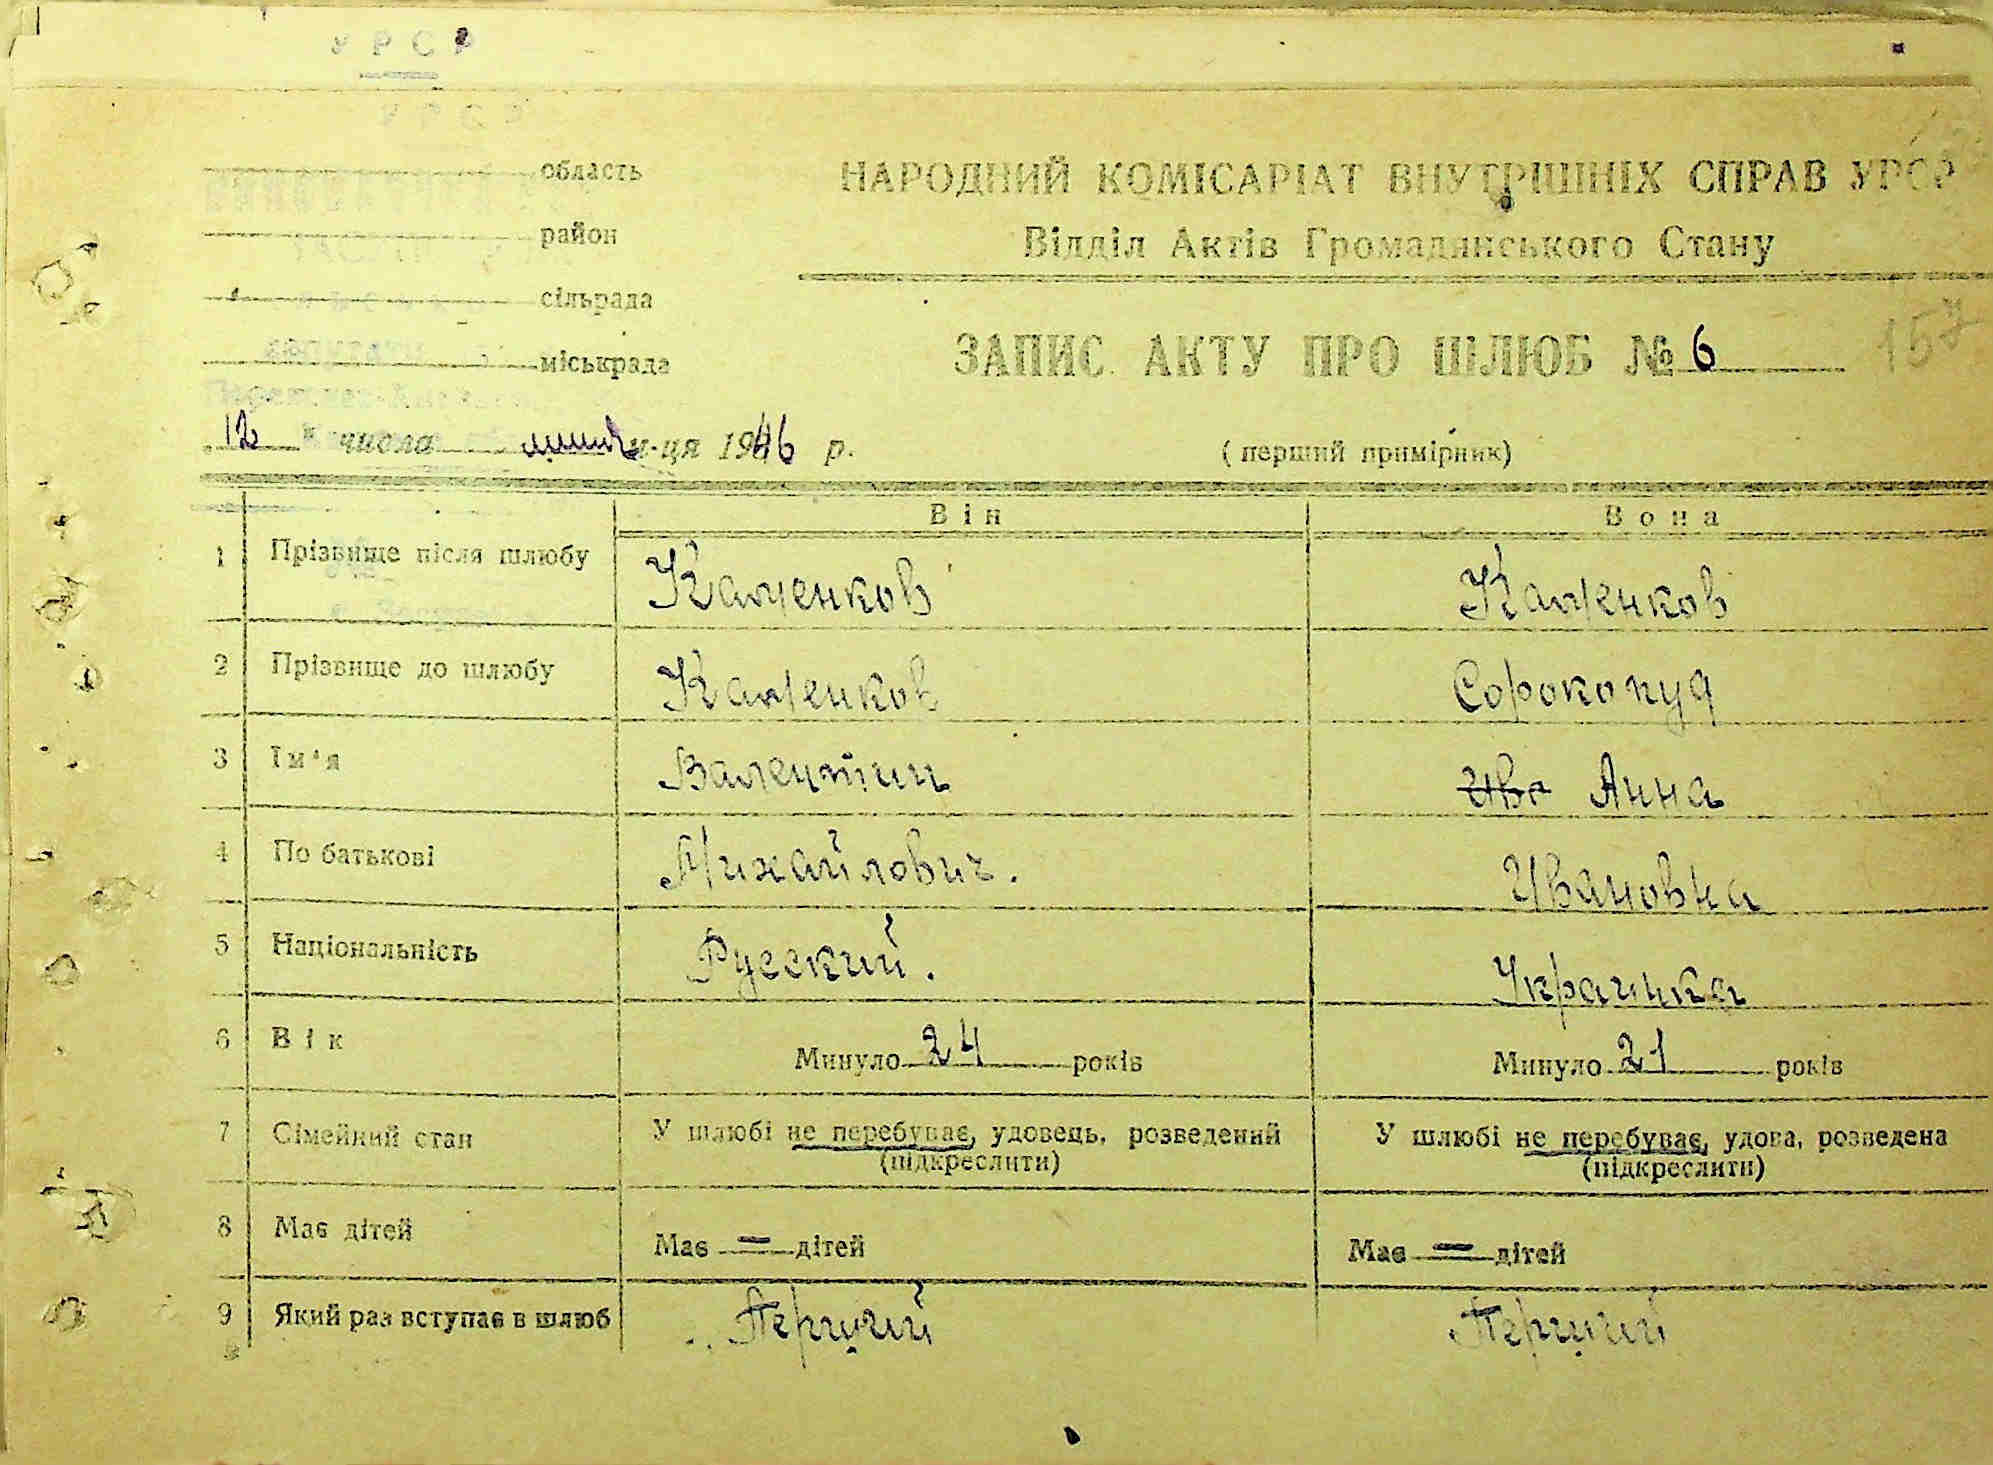 УРСР
УРСР
область
район
сільрада
міськрада
НАРОДНИЙ КОМІСАРІАТ ВНУТРІШНІХ СПРАВ УРСР
Відділ Актів Громадянського Стану
ЗАПИС АКТУ ПРО ШЛЮБ № 6
157
12 " числа м-ця 1946 р.
( перший примірник)
Він Вона
1 Прізвище після шлюбу Каменков Каменков
2 Прізвище до шлюбу Каменков Сорокопуд
3 Ім'я Валентин Анна
4 По батькові Михайлович. Ивановна
5 Національність Русский. Украинка
6 Вік Минуло 24 років Минуло 21 років
7 Сімейний стан У шлюбі не перебуває, удовець, розведений У шлюбі не перебуває, удова, розведена
(підкреслити) (підкреслити)
8 Має дітей Має — дітей Має — дітей
9 Який раз вступає в шлюб Перший Перший